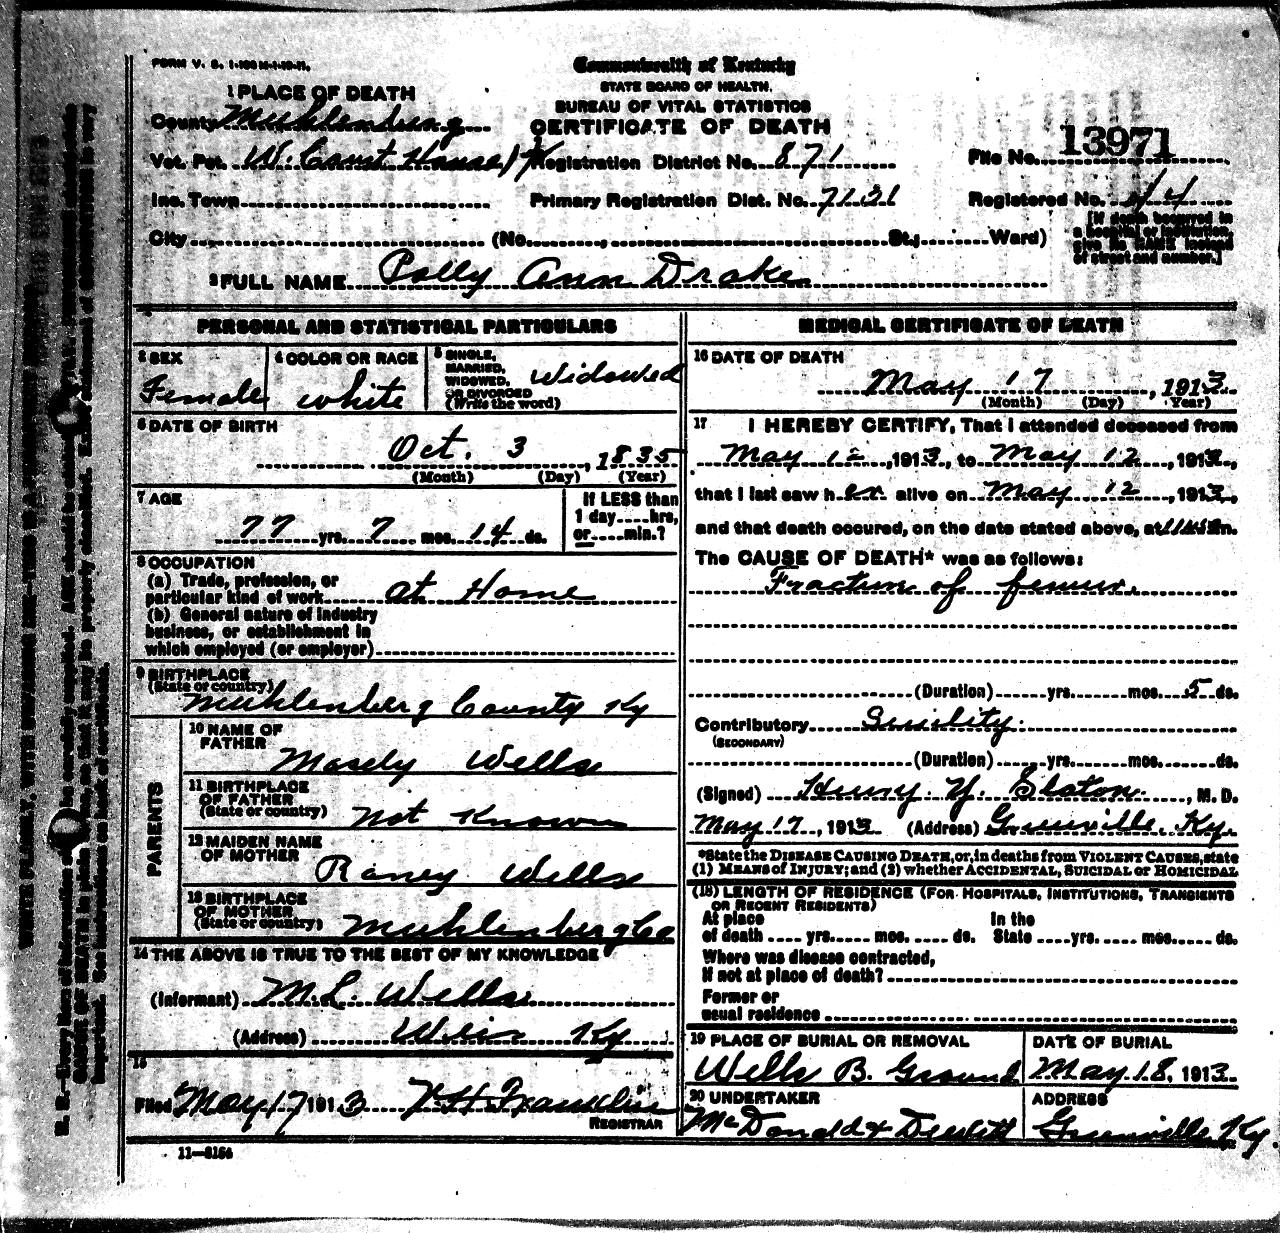 Commonwealth of Kentucky
STATE BOARD OF HEALTH.
BUREAU OF VITAL STATISTICS
CERTIFICATE OF DEATH
1 PLACE OF DEATH
County Muhlenburg
Vot. Pct. W. Court House Registration District No. 871 File No. 13971
Inc. Town Primary Registration Dist. No. 7121 Registered No. 44
City (No. , St.; Ward)
[If death occurred in
a hospital or institution,
give its NAME instead
of street and number.]
FULL NAME Polly Ann Drake
PERSONAL AND STATISTICAL PARTICULARS
3 SEX
Female
4 COLOR OR RACE
white
5 SINGLE,
MARRIED,
WIDOWED,
OR DIVORCED
(Write the word)
Widowed
6 DATE OF BIRTH
Oct. 3, 1835
(Month) (Day) (Year)
7 AGE
77 yrs. 7 mos. 14 ds.
If LESS than
1 day....hrs,
or.....min.?
8 OCCUPATION
(a) Trade, profession, or
particular kind of work at Home
(b) General nature of industry
business, or establishment in
which employed (or employer)
9 BIRTHPLACE
(State or country)
Muhlenberg County Ky
PARENTS
10 NAME OF
FATHER
Mosely Wells
11 BIRTHPLACE
OF FATHER
(State or country)
Not Known
12 MAIDEN NAME
OF MOTHER
Raney Wells
13 BIRTHPLACE
OF MOTHER
(State or country)
Muhlenberg Co
14 THE ABOVE IS TRUE TO THE BEST OF MY KNOWLEDGE
(Informant) M. L. Wells
(Address) Weir Ky
15
Filed May 17 1913 Franklin
REGISTRAR
11—3156
MEDICAL CERTIFICATE OF DEATH
16 DATE OF DEATH
May 17, 1913
(Month) (Day) (Year)
17 I HEREBY CERTIFY, That I attended deceased from
May 12, 1913, to May 12, 1913,
that I last saw her alive on May 12, 1913,
and that death occured, on the date stated above, at m.
The CAUSE OF DEATH* was as follows:
Fracture of femur.
(Duration) yrs. mos. 5 ds.
Contributory Senility.
(SECONDARY)
(Duration) yrs. mos. ds.
(Signed) Henry Y. Slaton, M. D.
May 17, 1913 (Address) Greenville, Ky.
*State the DISEASE CAUSING DEATH, or, in deaths from VIOLENT CAUSES, state
(1) MEANS of INJURY; and (2) whether ACCIDENTAL, SUICIDAL or HOMICIDAL
(18) LENGTH OF RESIDENCE (FOR HOSPITALS, INSTITUTIONS, TRANSIENTS
OR RECENT RESIDENTS)
At place In the
of death .... yrs. .... mos. .... ds. State .... yrs. .... mos. .... ds.
Where was disease contracted,
if not at place of death?
Former or
usual residence
19 PLACE OF BURIAL OR REMOVAL
Wells B. Ground
DATE OF BURIAL
May 18, 1913
20 UNDERTAKER
McDonald & Dewitt
ADDRESS
Greenville, Ky.